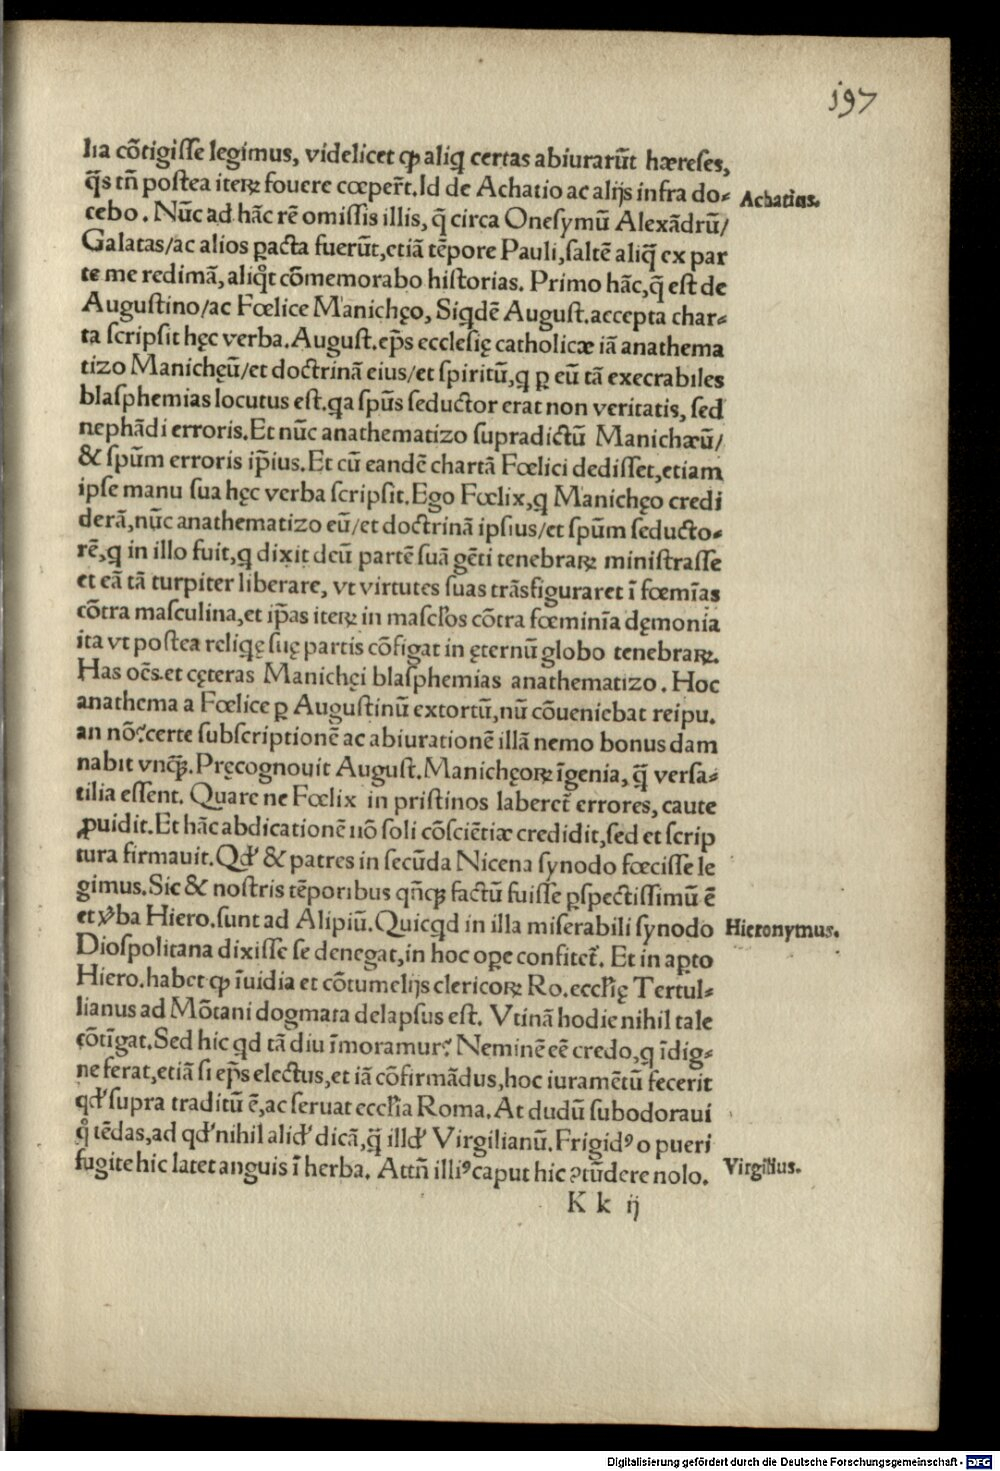 197
lia cōtigisse legimus, videlicet ꝙ aliq̄ certas abiurarūt hæreses,
q̄s tn̄ postea iterꝝ fouere cœper̄t. Id de Achatio ac alijs infra do⸗
Achatius.
cebo. Nūc ad hāc rē omissis illis, q̄ circa Onesymū Alexādrū/
Galatas/ac alios ꝑacta fuerūt, etiā tēpore Pauli, saltē aliq̄ ex par
te me redimā, aliqͦt cōmemorabo historias. Primo hāc, q̄ est de
Augustino/ac Fœlice Manichęo, Siqdē August. accepta char⸗
ta scripsit hęc verba. August. ep̄s ecclesię catholicæ iā anathema
tizo Manichęū/et doctrinā eius/et spiritū, q ꝑ eū tā execrabiles
blasphemias locutus est. qa spūs seductor erat non veritatis, sed
nephādi erroris. Et nūc anathematizo supradictū Manichæū/
& spūm erroris ip̄ius. Et cū eandē chartā Fœlici dedisset, etiam
ipse manu sua hęc verba scripsit. Ego Fœlix, q Manichęo credi
derā, nūc anathematizo eū/et doctrinā ipsius/et spūm seducto⸗
rē, q in illo fuit, q dixit deū partē suā gēti tenebraꝝ ministrasse
et eā tā turpiter liberare, vt virtutes suas trāsfiguraret ī fœmīas
cōtra masculina, et ip̄as iterꝝ in mascl'os cōtra fœminīa dęmonia
ita vt postea reliqę suę partis cōfigat in ęternū globo tenebraꝝ.
Has oēs. et cęteras Manichęi blasphemias anathematizo. Hoc
anathema a Fœlice ꝑ Augustinū extortū, nū cōueniebat reipu.
an nō? certe subscriptionē ac abiurationē illā nemo bonus dam
nabit vnqꝫ. Pręcognouit August. Manichęoꝝ īgenia, q̄ versa⸗
tilia essent. Quare ne Fœlix in pristinos laberet̄ errores, caute
ꝓuidit. Et hāc abdicationē nō soli cōsciētiæ credidit, sed et scrip
tura firmauit. Qd' & patres in secūda Nicena synodo fœcisse le
gimus. Sic & nostris tēporibus qn̄qꝫ factū fuisse ꝑspectissimū ē
et v̓ba Hiero. sunt ad Alipiū. Quicqd in illa miserabili synodo
Hieronymus.
Diospolitana dixisse se denegat, in hoc oꝑe confitet̄. Et in aꝑto
Hiero. habet ꝙ īuidia et cōtumelijs clericoꝝ Ro. eccl'ię Tertul⸗
lianus ad Mōtani dogmata delapsus est. Vtinā hodie nihil tale
cōtīgat. Sed hic qd tā diu īmoramur? Neminē eē credo, q īdig⸗
ne ferat, etiā si ep̄s electus, et iā cōfirmādus, hoc iuramētū fecerit
qd' supra traditū ē, ac seruat eccl'ia Roma. At dudū subodoraui
qͦ tēdas, ad qd' nihil alid' dicā, q̄ illd' Virgilianū. Frigidꝰ o pueri
fugite hic latet anguis ī herba. Attn̄ illiꝰ caput hic ꝯtūdere nolo.
Virgilius.
K k ij
Digitalisierung gefördert durch die Deutsche Forschungsgemeinschaft - DFG